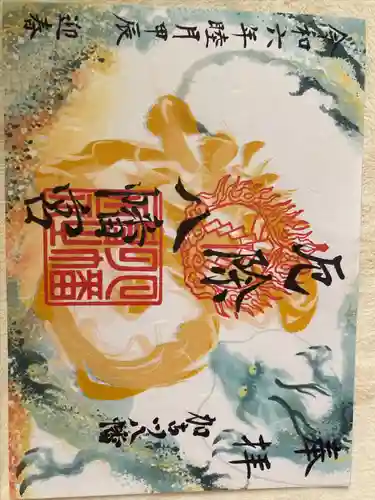 奉拝 加古川八幡
厄除八幡宮
令和六年睦月甲辰 迎春